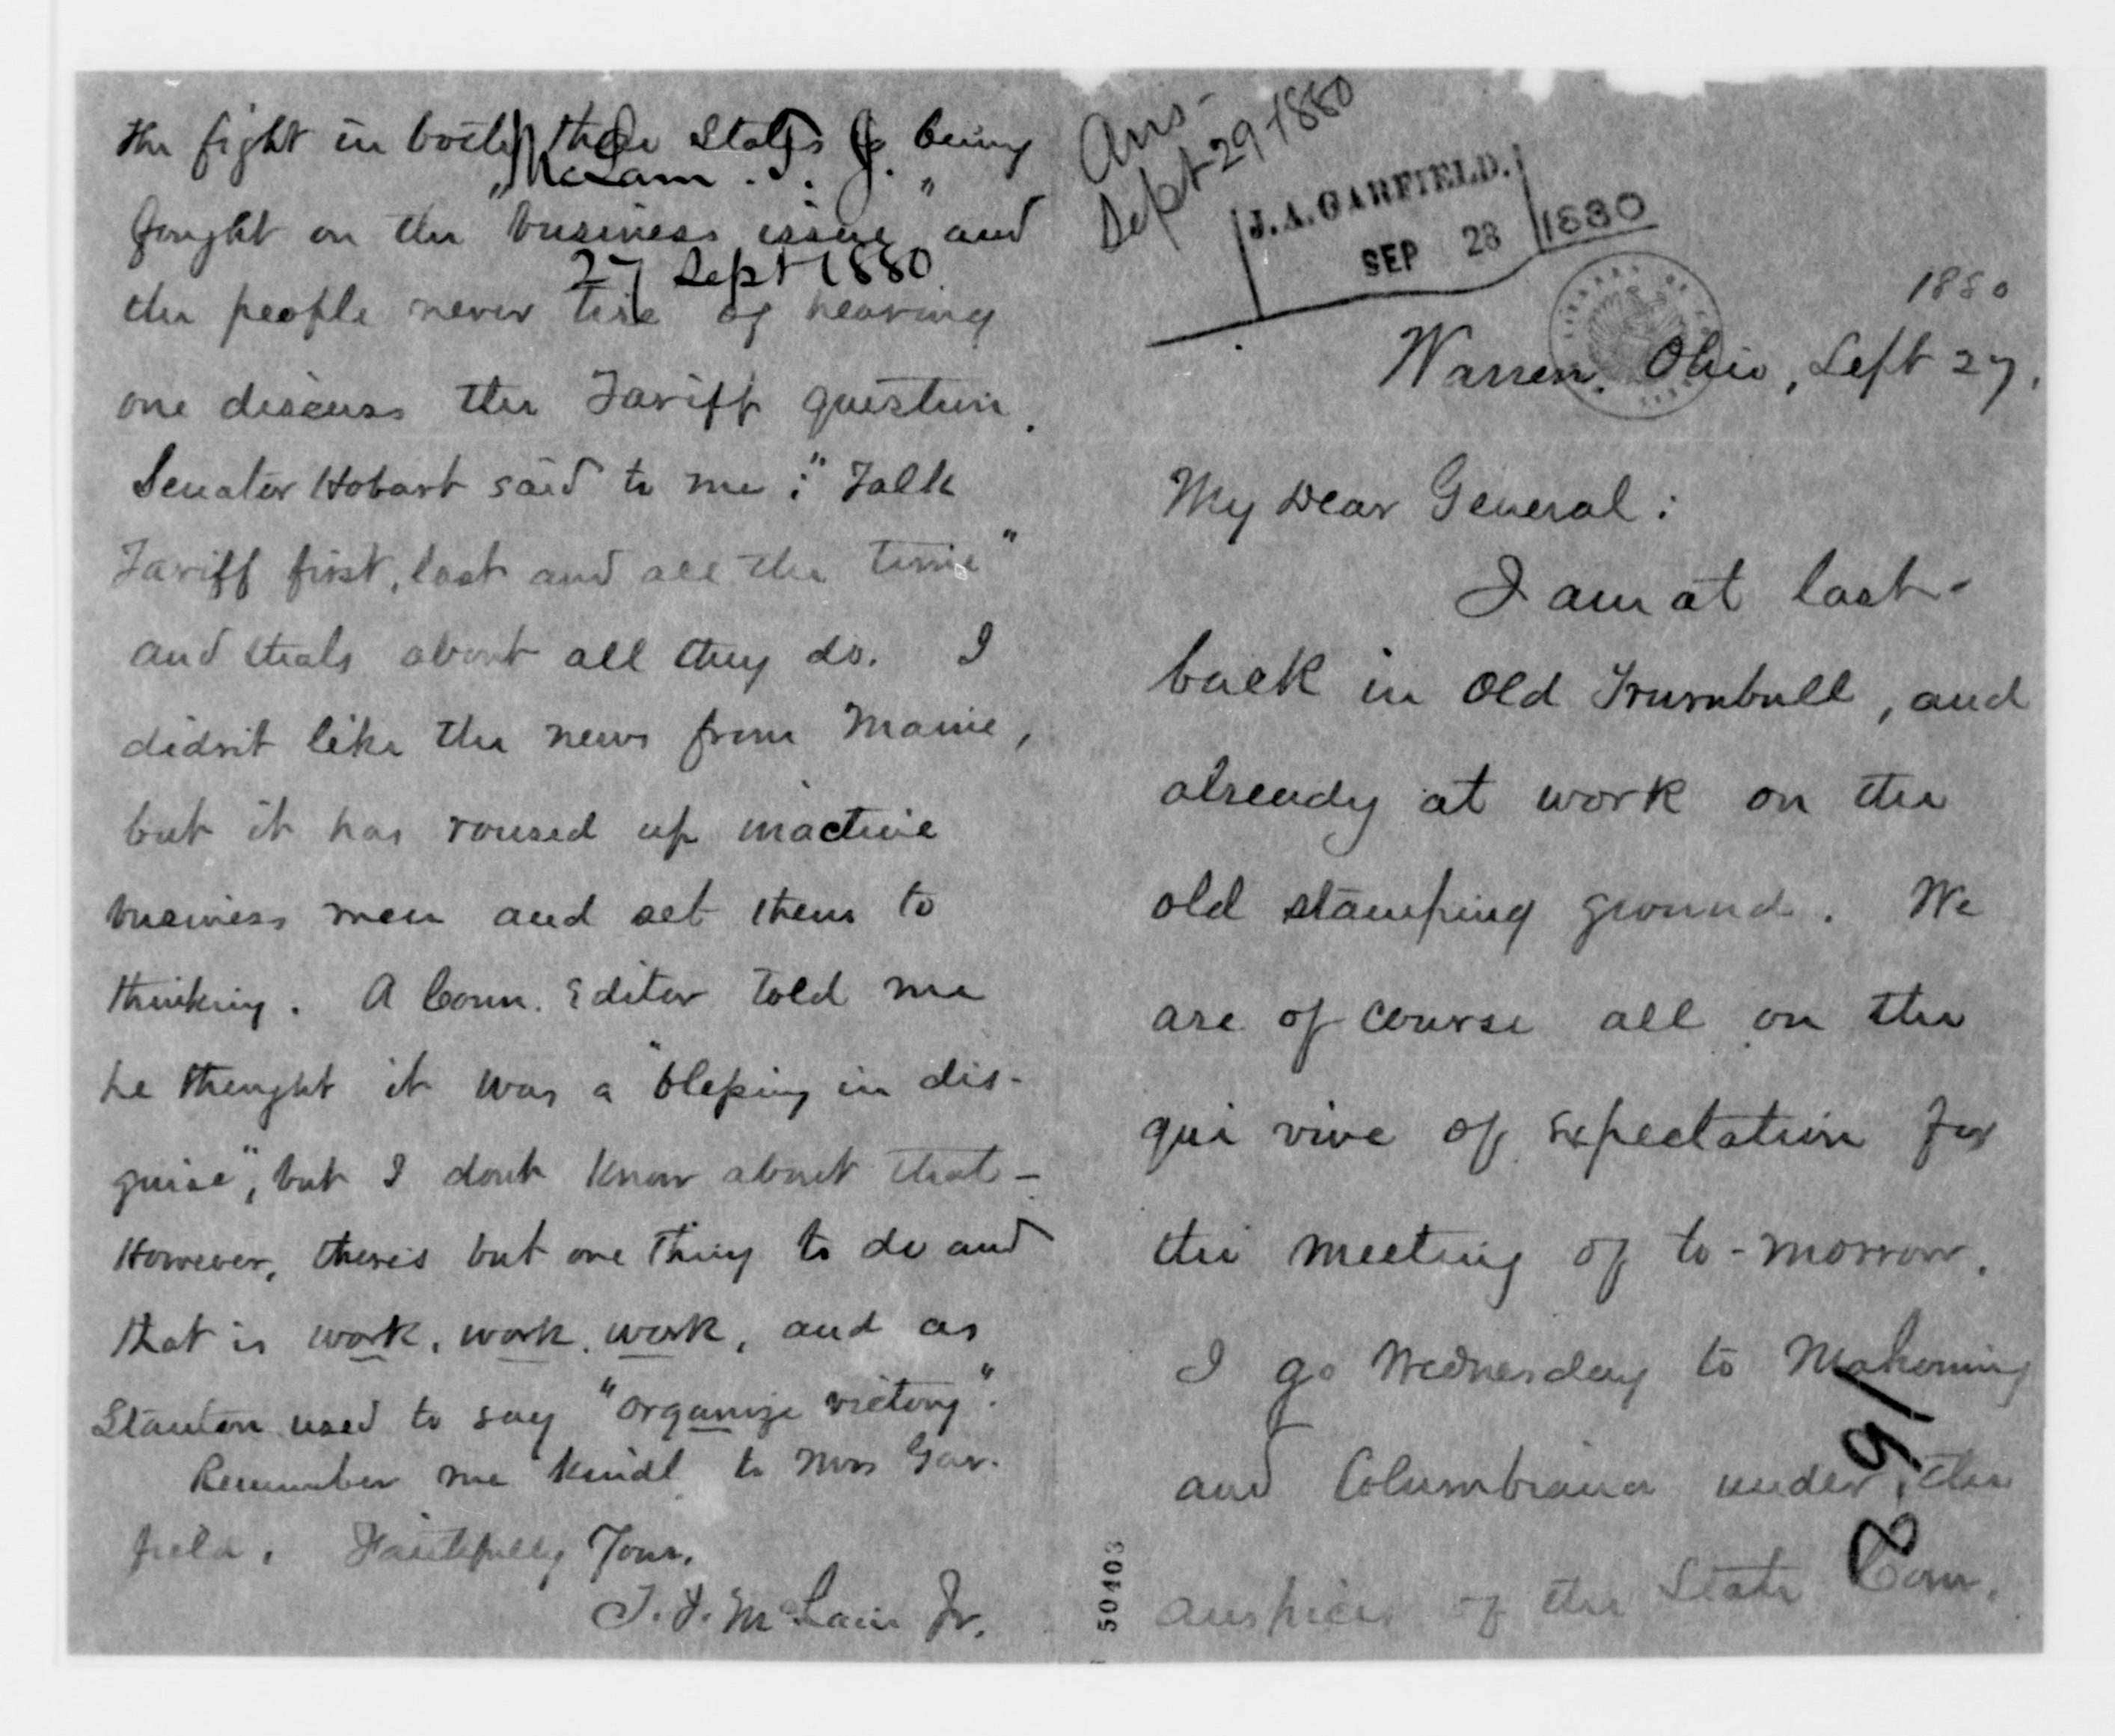 the fight in both these States is being
"McLain. T. J."
fought on the "business issue" and
27 Sept 1880
the people never tire of hearing
one discuss the Tariff question.
Senator Hobart said to me: "Talk
Tariff first, last and all the time"
and thats about all they do. I
didn't like the news from Maine,
but it has roused up inactive
business men and set them to
thinking. A Conn. Editor told me
he thought it was a "blessing in dis-
guise", but I dont know about that-
However, there's but one thing to do and
that is work, work, work, and as
Stanton used to say "organize victory".
Remember me kindl to Mrs Gar-
field. Faithfully Yours,
T. J. McLain Jr.
Ans-
Sept 29-1880
J. A. GARFIELD.
SEP 28 1880
1880
Warren, Ohio, Sept 27.
My Dear General:
I am at last-
back in Old Trumbull, and
already at work on the
old stamping ground. We
are of course all on the
qui vive of expectation for
the meeting of to-morrow.
I go Wednesday to Mahoning
and Columbiana under the
auspices of the State Com.
50403